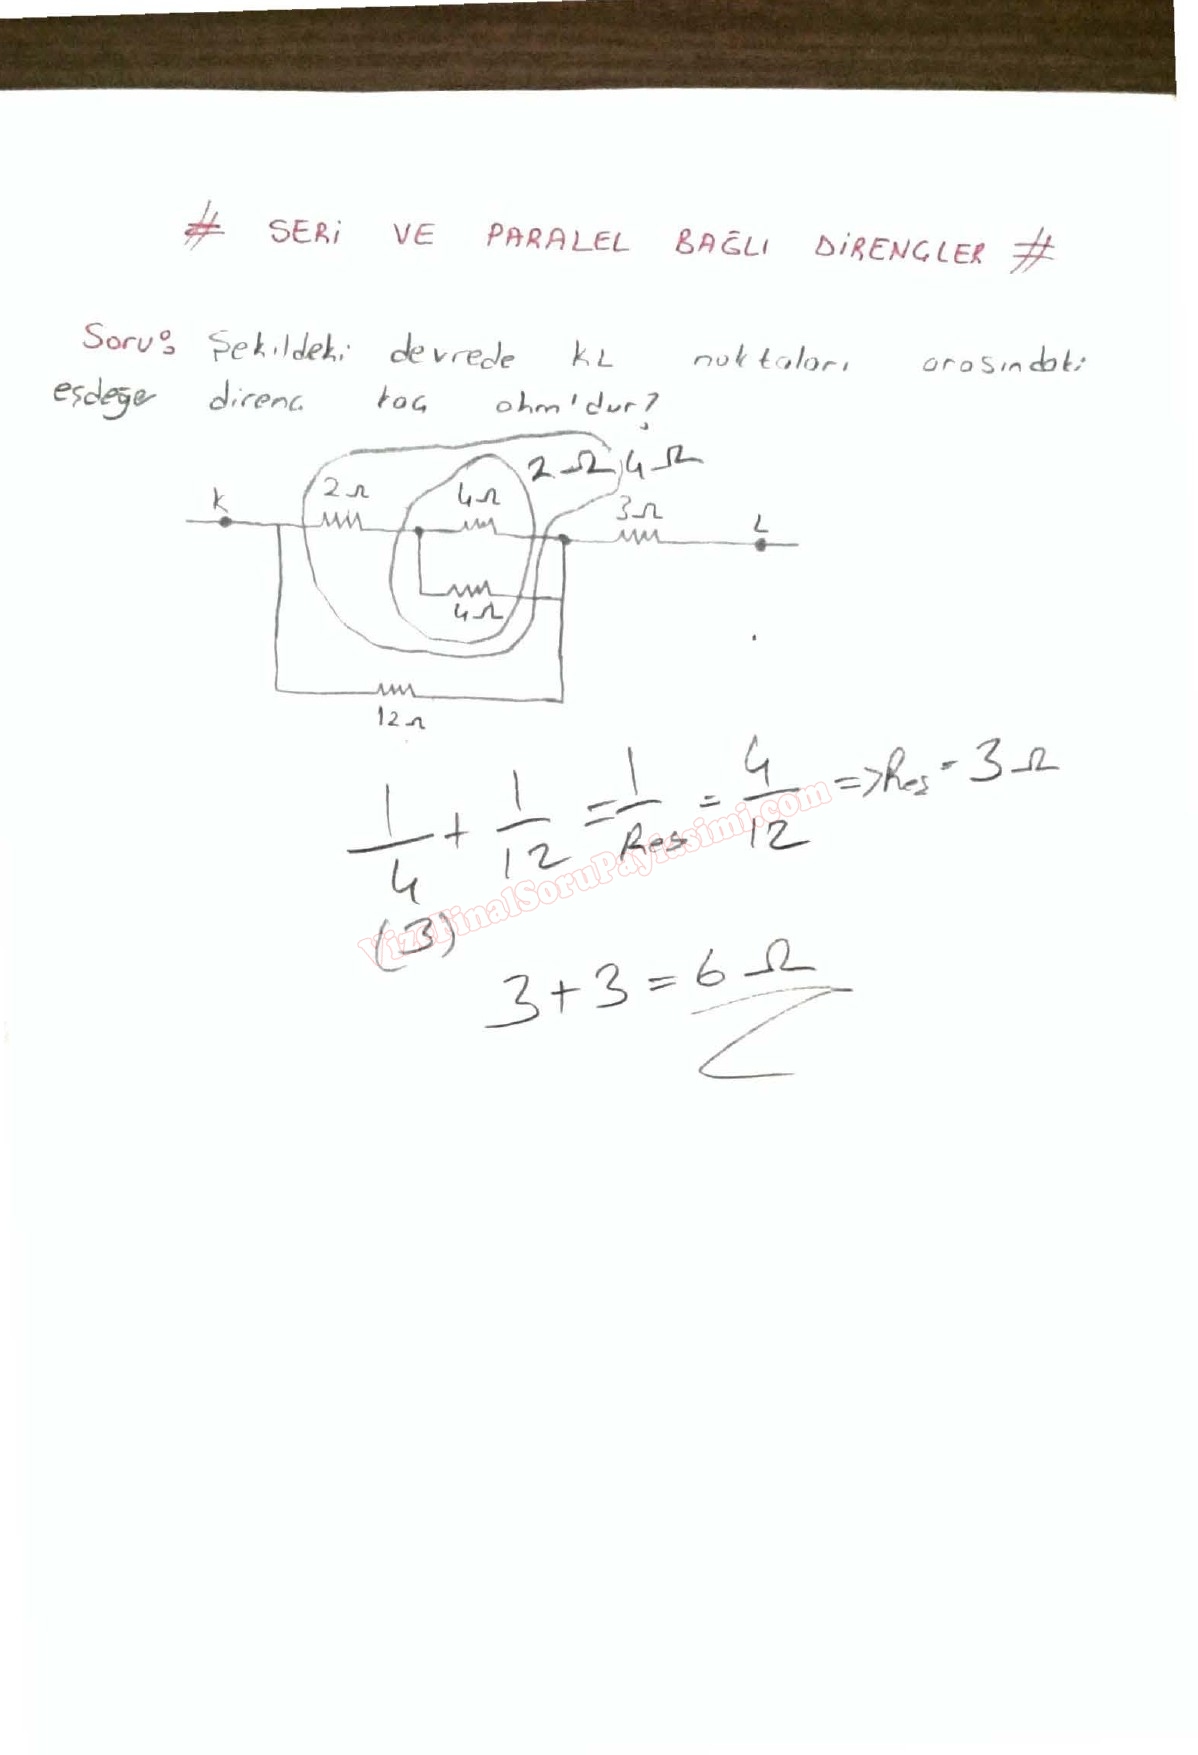 # SERİ VE PARALEL BAĞLI DİRENÇLER #
Soru: Şekildeki devrede KL noktaları arasındaki
eşdeğer direnç kaç ohm'dur?
2Ω 4Ω
2Ω 4Ω 3Ω
K L
4Ω
12Ω
1/4 + 1/12 = 1/Reş = 4/12 => Reş = 3Ω
(3)
VizeFinalSoruPaylasimi.com
3+3=6Ω